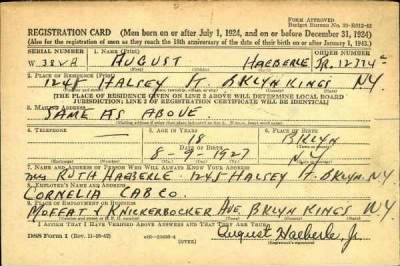 FORM APPROVED
REGISTRATION CARD (Men born on or after July 1, 1924, and on or before December 31, 1924)
(Also for the registration of men as they reach the 18th anniversary of the date of their birth on or after January 1, 1943.)
SERIAL NUMBER 1. NAME (Print) ORDER NUMBER
W AUGUST HAEBERLE JR.
2. PLACE OF RESIDENCE (Print)
1245 HALSEY ST. BKLYN KINGS NY.
[THE PLACE OF RESIDENCE GIVEN ON LINE 2 ABOVE WILL DETERMINE LOCAL BOARD
JURISDICTION; LINE 2 OF REGISTRATION CERTIFICATE WILL BE IDENTICAL]
3. MAILING ADDRESS
SAME AS ABOVE
4. TELEPHONE 5. AGE IN YEARS 6. PLACE OF BIRTH
18 BKLYN
8-9-1927 NY
7. NAME AND ADDRESS OF PERSON WHO WILL ALWAYS KNOW YOUR ADDRESS
MRS RUTH HAEBERLE 1245 HALSEY ST. BKLYN. NY.
8. EMPLOYER'S NAME AND ADDRESS
CORNELIA CAB CO.
9. PLACE OF EMPLOYMENT OR BUSINESS
MOFFAT & KNICKERBOCKER AVE BKLYN KINGS NY.
I AFFIRM THAT I HAVE VERIFIED ABOVE ANSWERS AND THAT THEY ARE TRUE.
August Haeberle, Jr.
DSS Form 1 (OVER) (Registrant's signature)